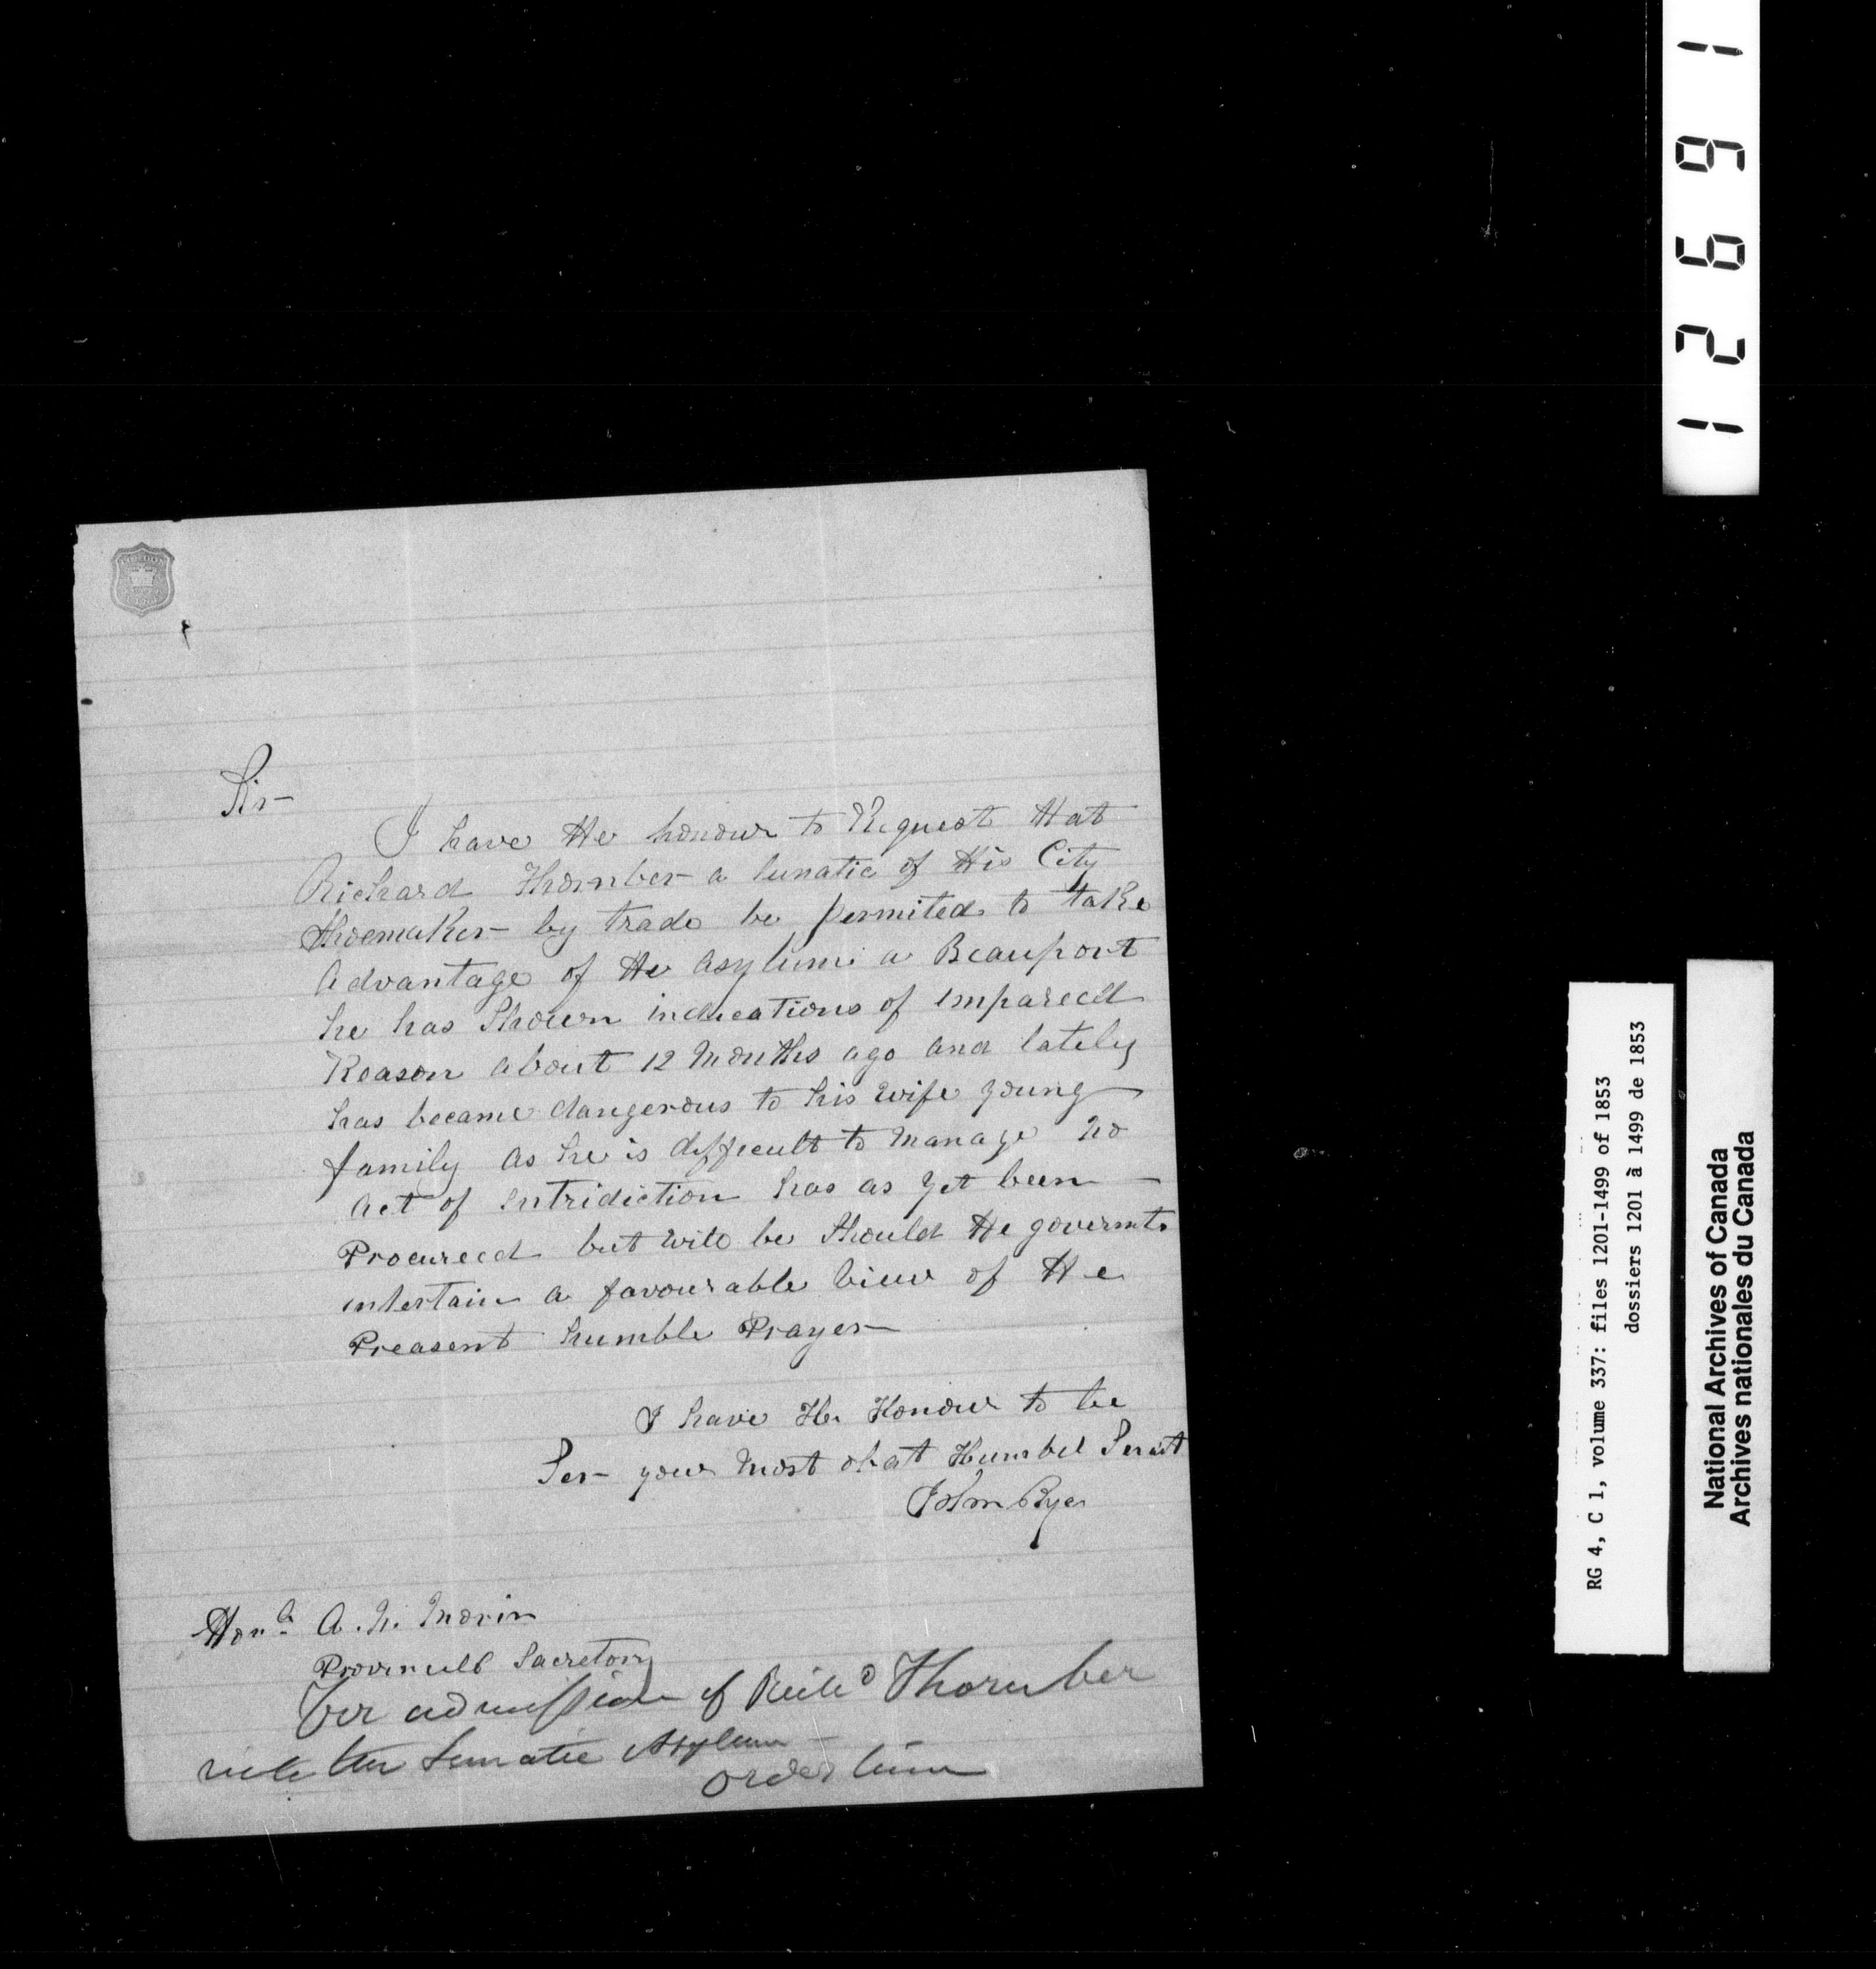 Sir-
I have the honour to Request that
Richard Thornber a lunatic of this City
Shoemaker by trade be permited to take
Advantage of the Asylum a Beauport
he has Shown indications of impareed
Reason about 12 Months ago and lately
has became dangerous to his wife young
family as he is difficult to manage no
Act of intridiction has as yet been -
Procureed but will be Should the governt.
intertain a favourable View of the
Preasent humble Prayer
I have the Honour to be
Ser your most obat Humbel Servt
John Rye
Honb. A. N. Morin
Secretory
for admission of Richd Thornber
into the Lunatic Asylum
order
12691
RG 4, C 1, volume 337: files 1201-1499 of 1853
dossiers 1201 à 1499 de 1853
National Archives of Canada
Archives nationales du Canada